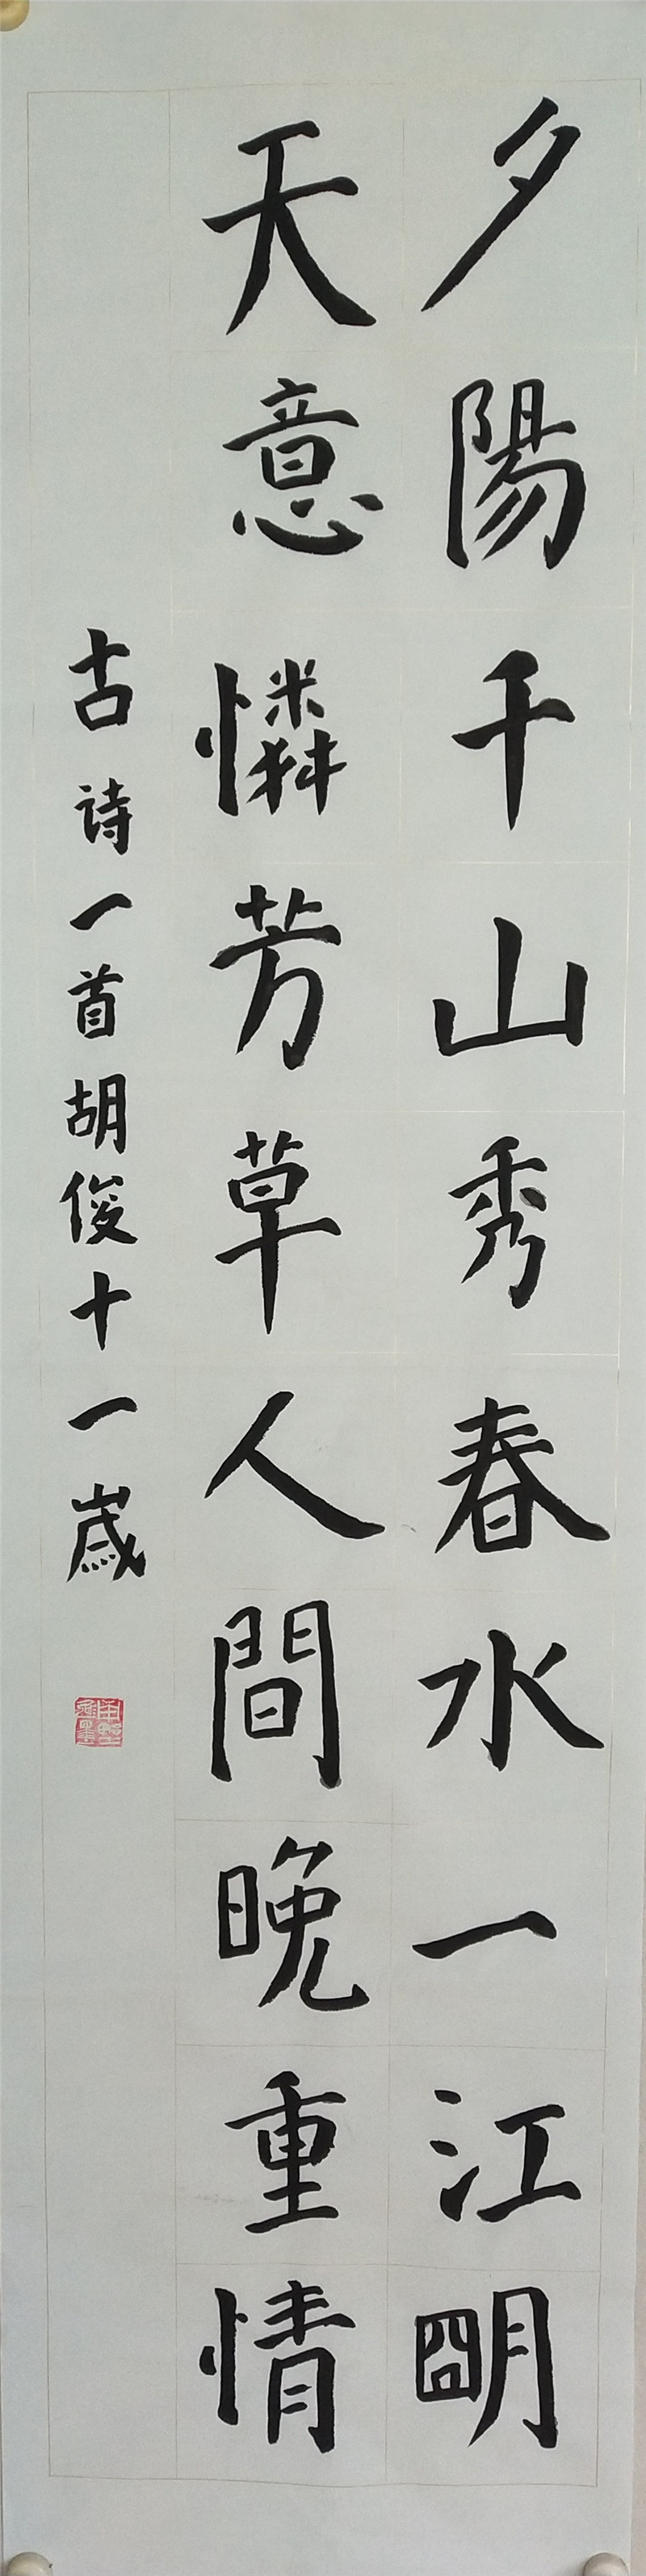 夕陽千山秀春水一江朙
天意憐芳草人間晚重情
古詩一首胡俊十一歲